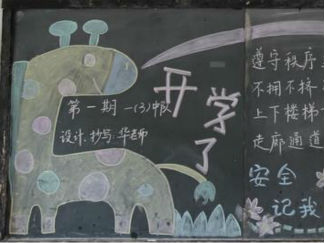 第一期 一(3)中队
设计.抄写:华老师
开学了
遵守秩序
不拥不挤
上下楼梯
走廊通道
安全
记我